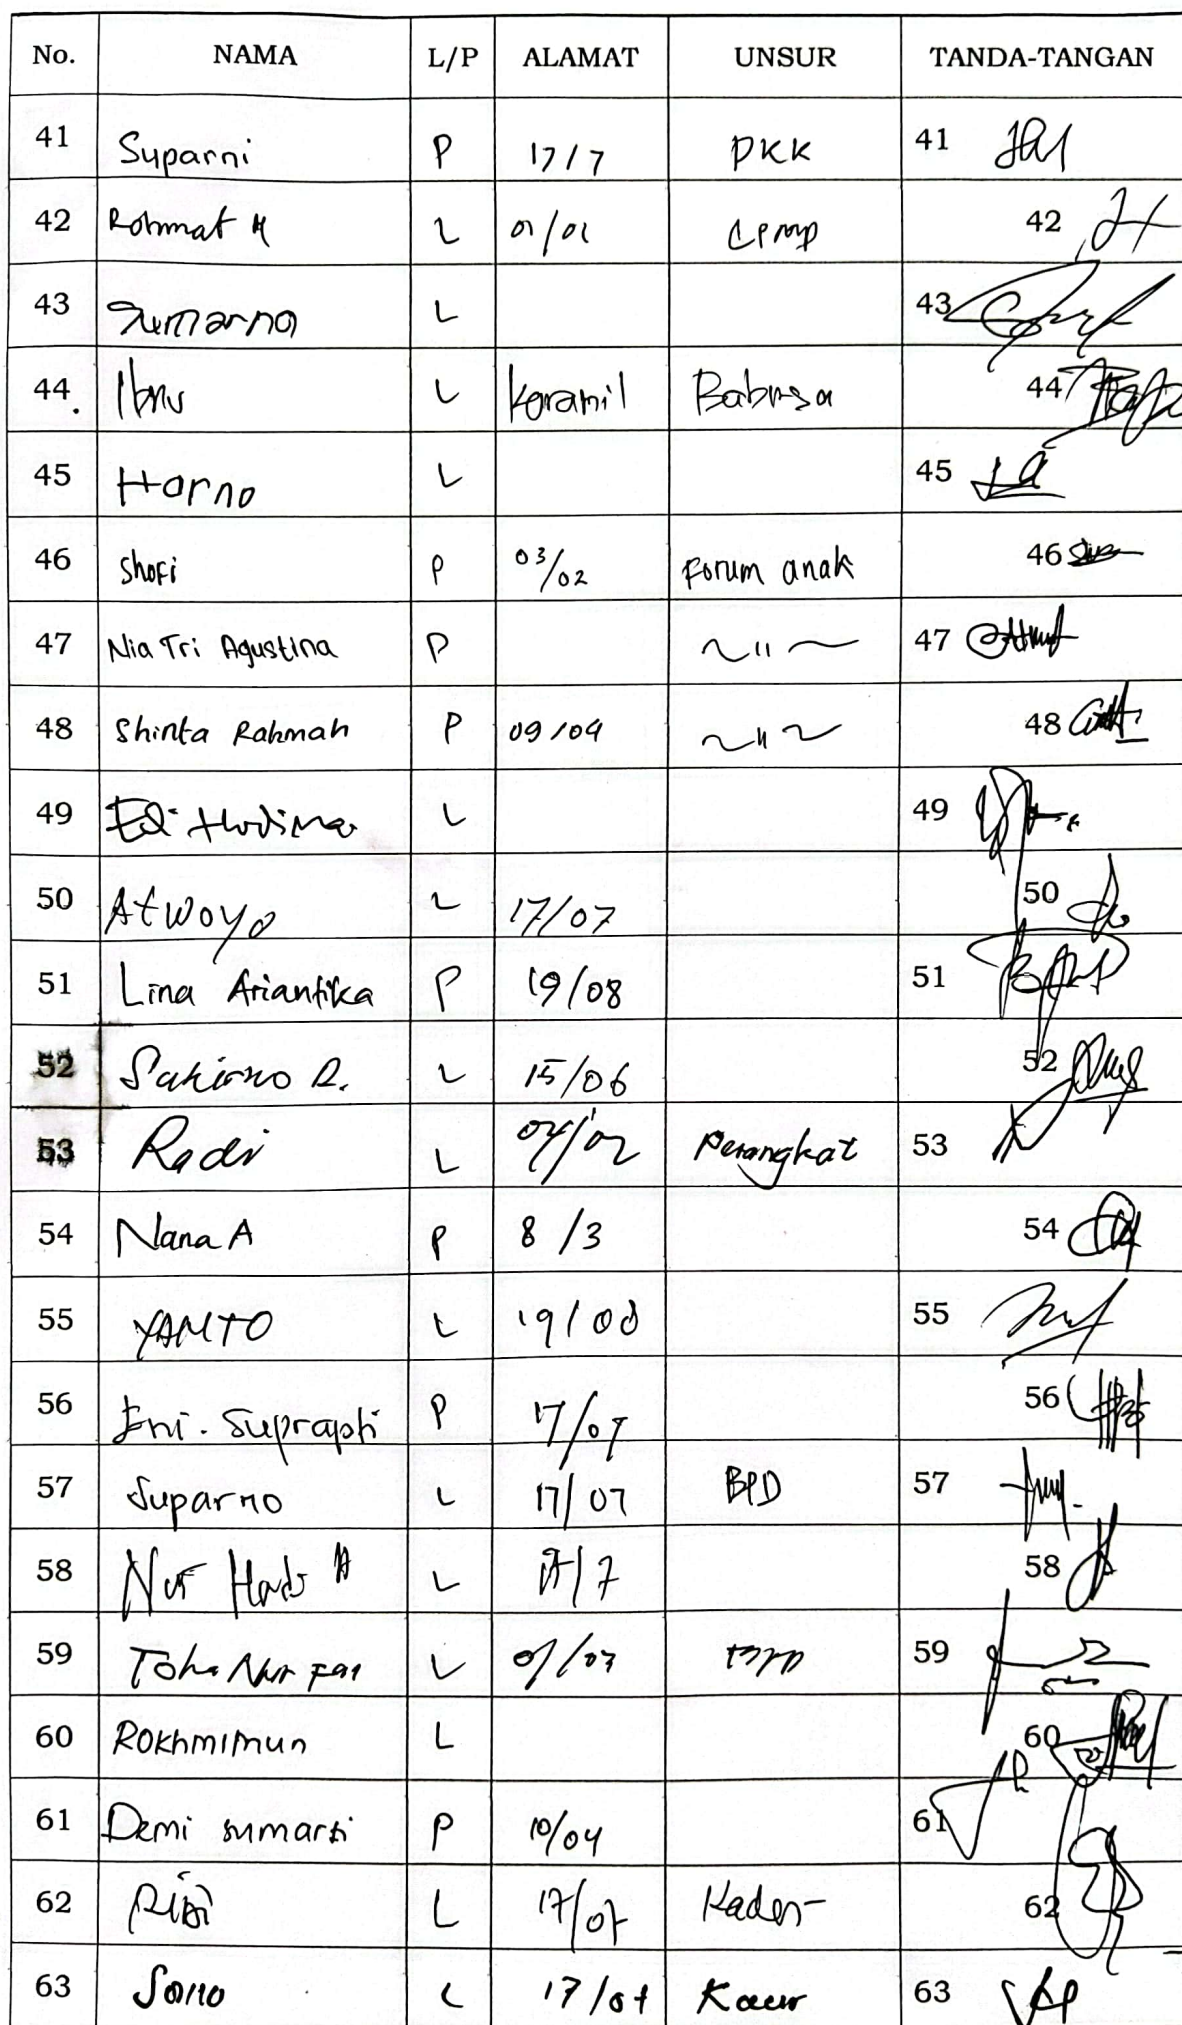 No. NAMA L/P ALAMAT UNSUR TANDA-TANGAN
41 Suparni P 17/7 PKK 41
42 Rohmat H L 01/01 LPMP 42
43 Sumarno L 43
44. Ibnu L Koramil Babinsa 44
45 Harno L 45
46 Shofi P 03/02 Forum anak 46
47 Nia Tri Agustina P ~ " ~ 47
48 Shinta Rahmah P 09/04 ~ " ~ 48
49 Edi L 49
50 Atwoyo L 17/07 50
51 Lina Ariantika P 19/08 51
52 Sakirno D. L 15/06 52
53 Radi L 04/02 Perangkat 53
54 Nana A P 8/3 54
55 YAMTO L 19/08 55
56 Eni. Suprapti P 17/07 56
57 Suparno L 17/07 BPD 57
58 Nur Hadi A L 17/7 58
59 Toha Nur L 59
60 Rokhmimun L 60
61 Demi sumarti P 10/04 61
62 L 17/07 Kader 62
63 Sono L 17/07 Kaur 63